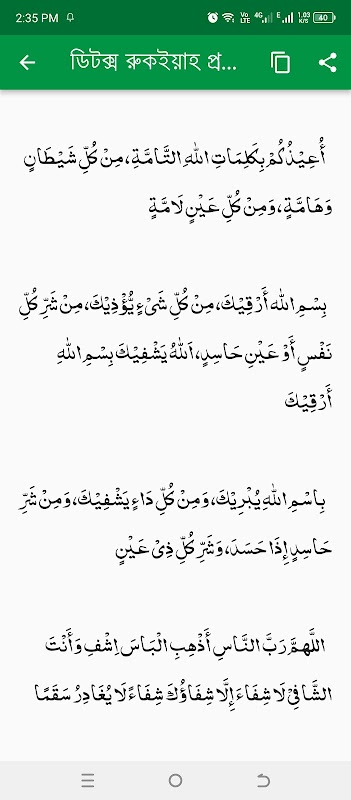 2:35 PM
Vo LTE 4G E 1.03 K/S 40
ডিটক্স রুকইয়াহ প্র...
أُعِيْذُكُمْ بِكَلِمَاتِ اللهِ التَّامَّةِ، مِنْ كُلِّ شَيْطَانٍ
وَهَامَّةٍ، وَمِنْ كُلِّ عَيْنٍ لَامَّةٍ
بِسْمِ اللهِ أَرْقِيْكَ، مِنْ كُلِّ شَيْءٍ يُّؤْذِيْكَ، مِنْ شَرِّ كُلِّ
نَفْسٍ أَوْ عَيْنِ حَاسِدٍ، اَللهُ يَشْفِيْكَ بِسْمِ اللهِ
أَرْقِيْكَ
بِاسْمِ اللهِ يُبْرِيْكَ، وَمِنْ كُلِّ دَاءٍ يَشْفِيْكَ، وَمِنْ شَرِّ
حَاسِدٍ إِذَا حَسَدَ، وَشَرِّ كُلِّ ذِىْ عَيْنٍ
اللَّهمَّ رَبَّ النَّاسِ أَذْهِبِ الْبَاسَ اِشْفِ وَأَنْتَ
الشَّافِيْ لَا شِفَاءَ إِلَّا شِفَاؤُكَ شِفَاءً لَا يُغَادِرُ سَقَمًا